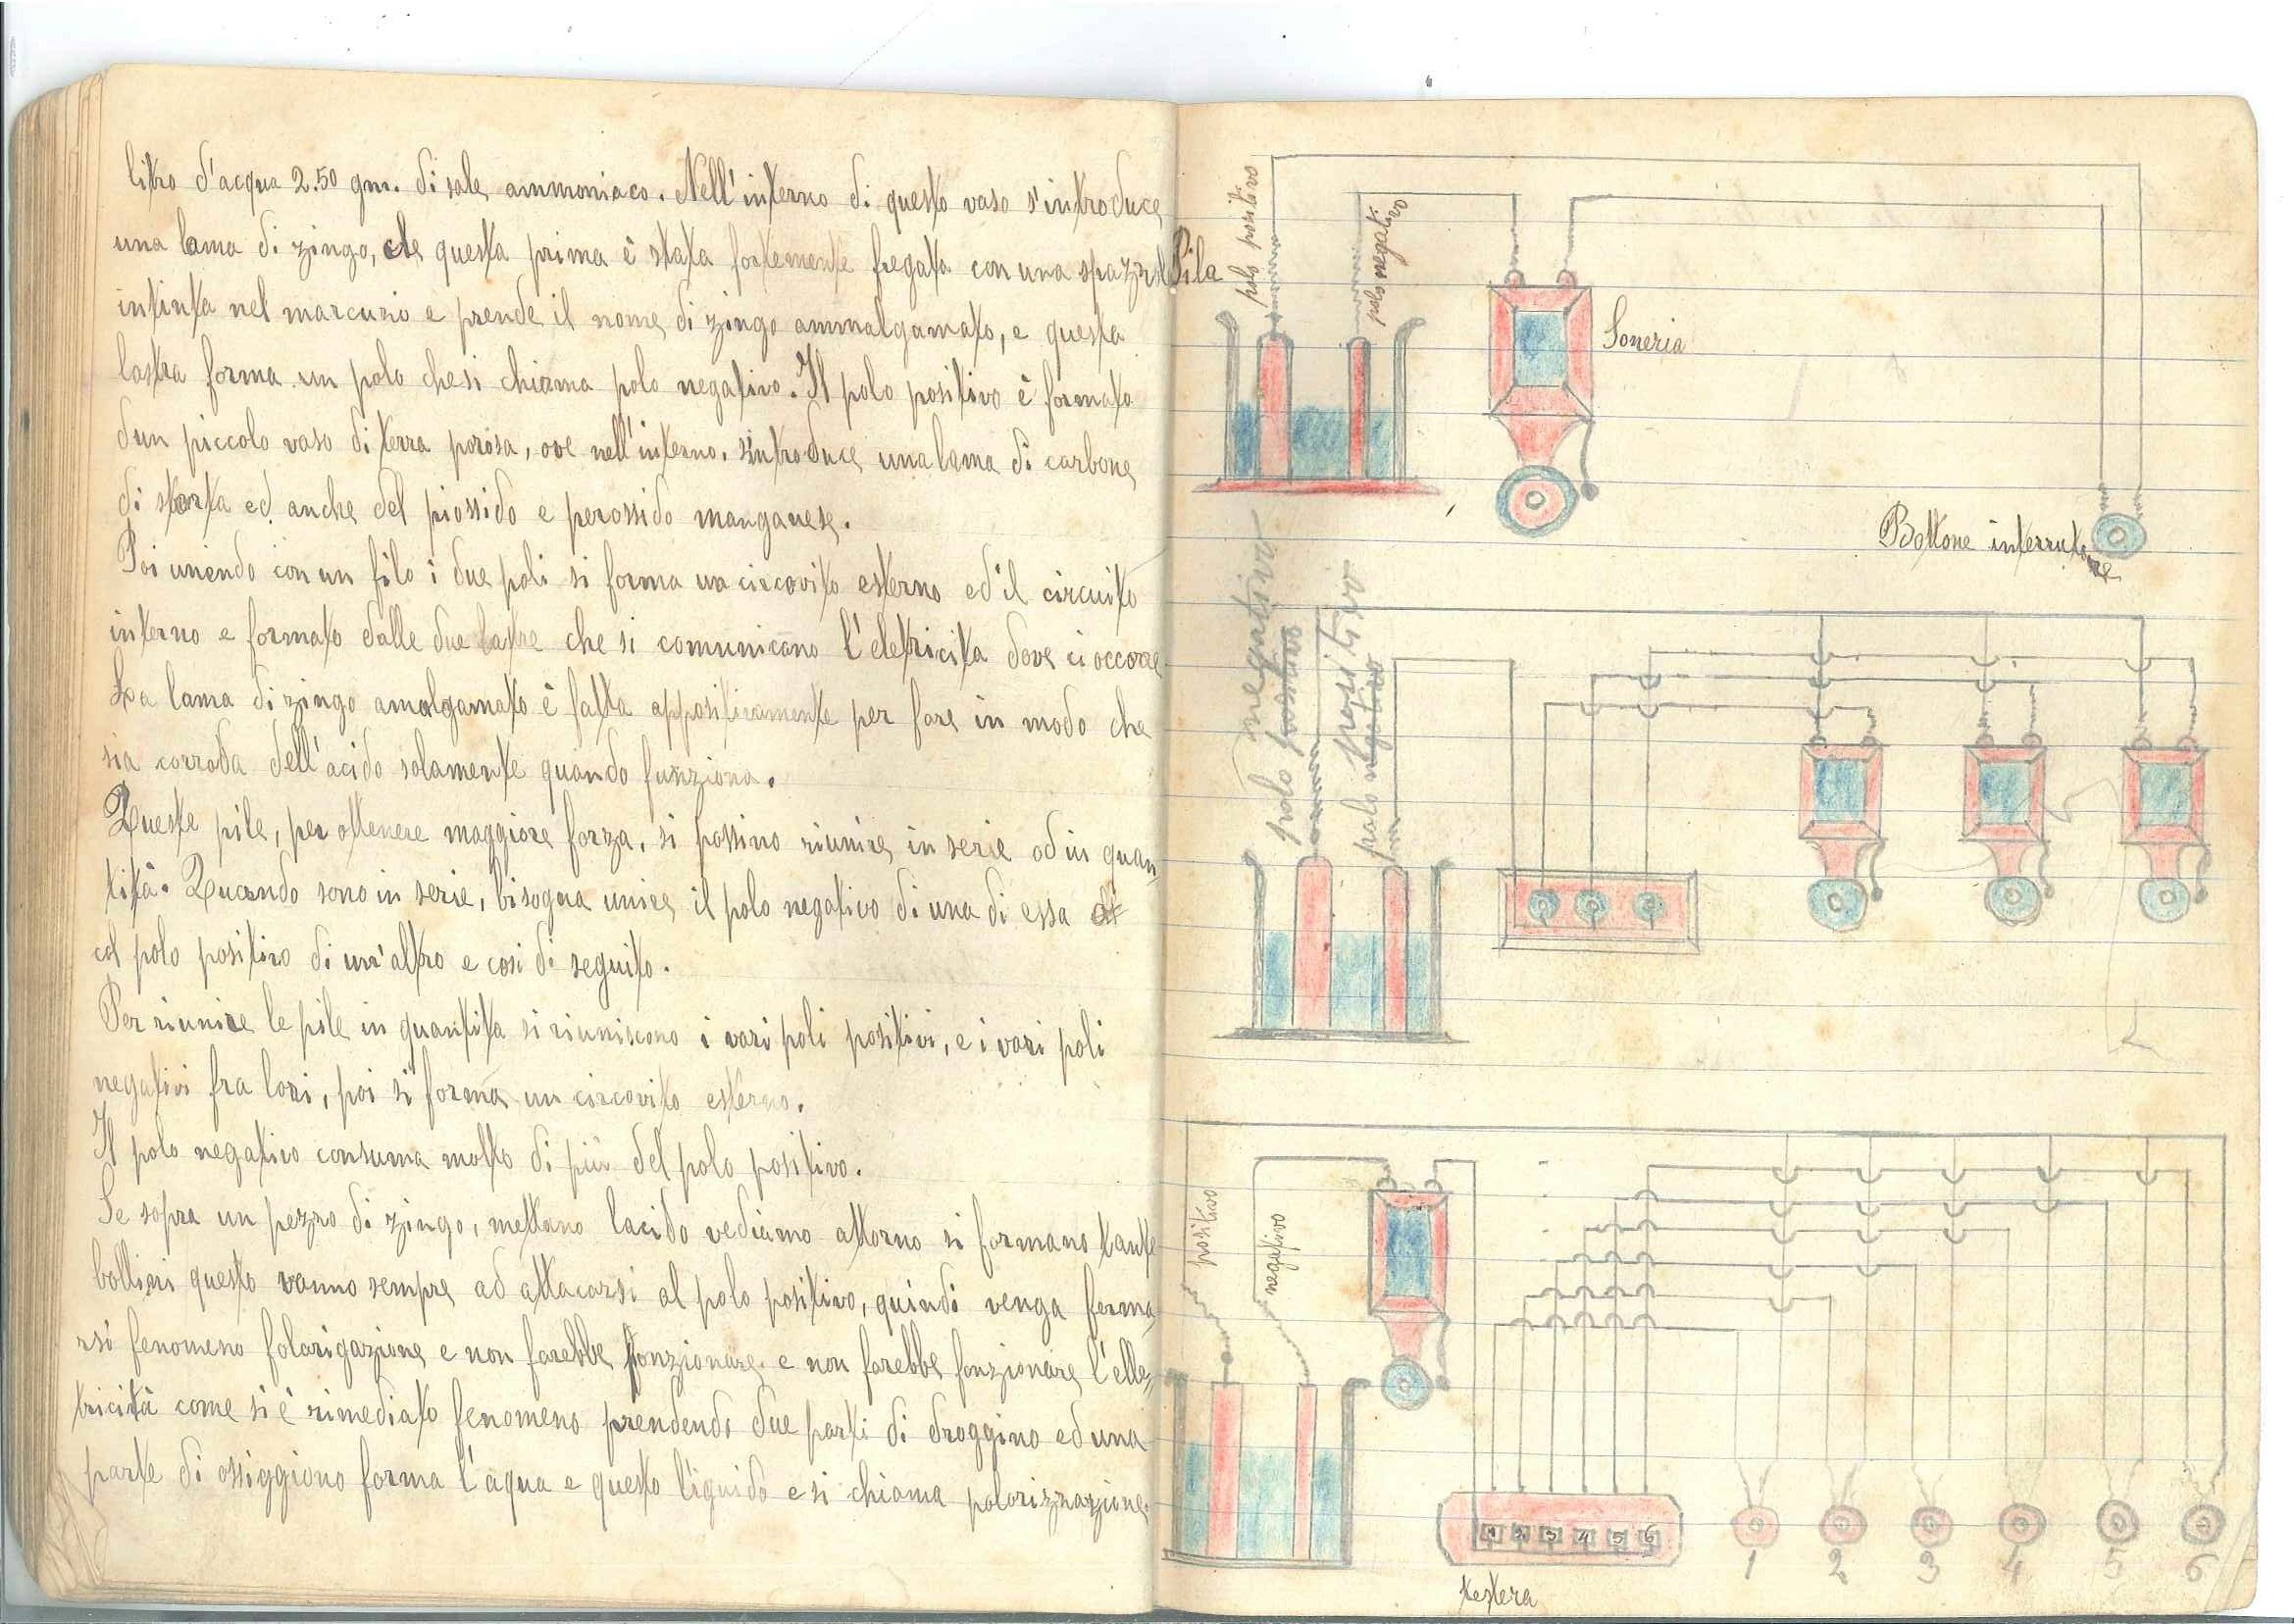 litro d'acqua 2.50 gm. di sale ammoniaco. Nell'interno di questo vaso s'introduce
una lama di zingo, che questa prima è stata fortemente fregata con una spazzol
intinta nel marcurio e prende il nome di zingo ammalgamato, e questa
lastra forma un polo che si chiama polo negativo. Il polo positivo è formato
dun piccolo vaso di terra porosa, ove nell'interno, s'introduce una lama di carbone
di storta ed anche del piossido e perossido manganese.
Poi unendo con un filo i due poli si forma un circovito esterno ed il circuito
interno e formato dalle due lastre che si comunicano l'eletricita dove ci occorre
La lama di zingo amalgamato è fatta appositivamente per fare in modo che
sia corroda dell'acido solamente quando funziona.
Queste pile, per ottenere maggiore forza, si possino riunire in serie od in quan-
tità. Quando sono in serie, bisogna unire il polo negativo di una di essa
col polo positivo di un'altro e cosi di seguito.
Per riunire le pile in quantita si riuniscono i vari poli positivi, e i vari poli
negativi fra lori, poi si forma un circovito esterno.
Il polo negativo consuma molto di più del polo positivo.
Se sopra un pezzo di zingo, mettano lacido vediamo attorno si formano tante
bollini questo vanno sempre ad attacarsi al polo positivo, quindi venga forma-
rsi fenomeno folarigazione e non farebbe fonzionare e non farebbe fonzionare l'elle-
tricità come si è rimediato fenomeno prendendo due parti di droggino ed una
parte di ossiggiono forma l'aqua e questo liquido e si chiama polorizzazione.
Pila
polo positivo
polo negativo
Soneria
Bottone interrutore
polo positivo negativo
polo negativo positivo
positivo
negativo
1 2 3 4 5 6
testera
1 2 3 4 5 6